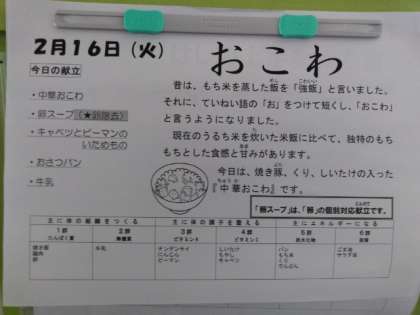 2月16日（火）
おこわ
今日の献立
・中華おこわ
・卵スープ（★卵除去）
・キャベツとピーマンの
いためもの
・おさつパン
・牛乳
昔は、もち米を蒸した飯を「強飯」と言いました。
それに、ていねい語の「お」をつけて短くし、「おこわ」
と言うようになりました。
現在のうるち米を炊いた米飯に比べて、独特のもち
もちとした食感と甘みがあります。
今日は、焼き豚、くり、しいたけの入った
『中華おこわ』です。
「卵スープ」は、「卵」の個別対応献立です。
主に体の組織をつくる 主に体の調子を整える 主にエネルギーになる
1群 2群 3群 4群 5群 6群
たんぱく質 無機質 ビタミンA ビタミンC 炭水化物 脂質
焼き豚 牛乳 チンゲンサイ しいたけ パン ごま油
鶏肉 にんじん もやし もち米 サラダ油
卵 ピーマン キャベツ くり
でんぷん